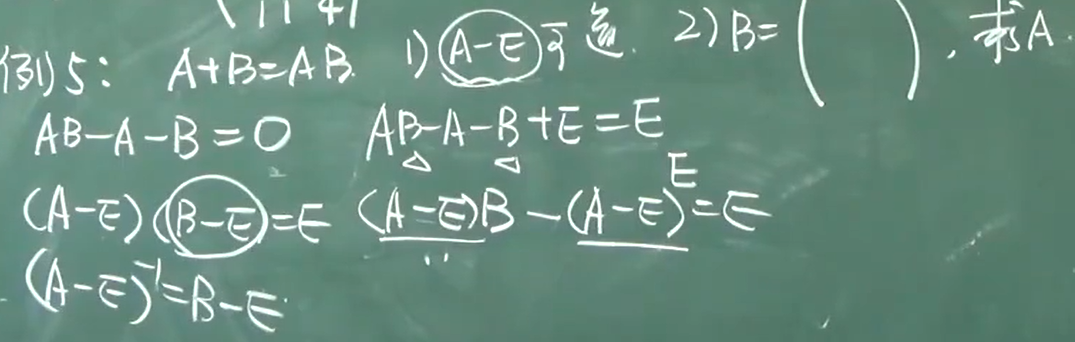 例5: A+B=AB. 1) (A-E)可逆. 2) B=( ), 求A.
AB-A-B=O AB-A-B+E=E
(A-E)(B-E)=E (A-E)B-(A-E)E=E
(A-E)⁻¹=B-E.